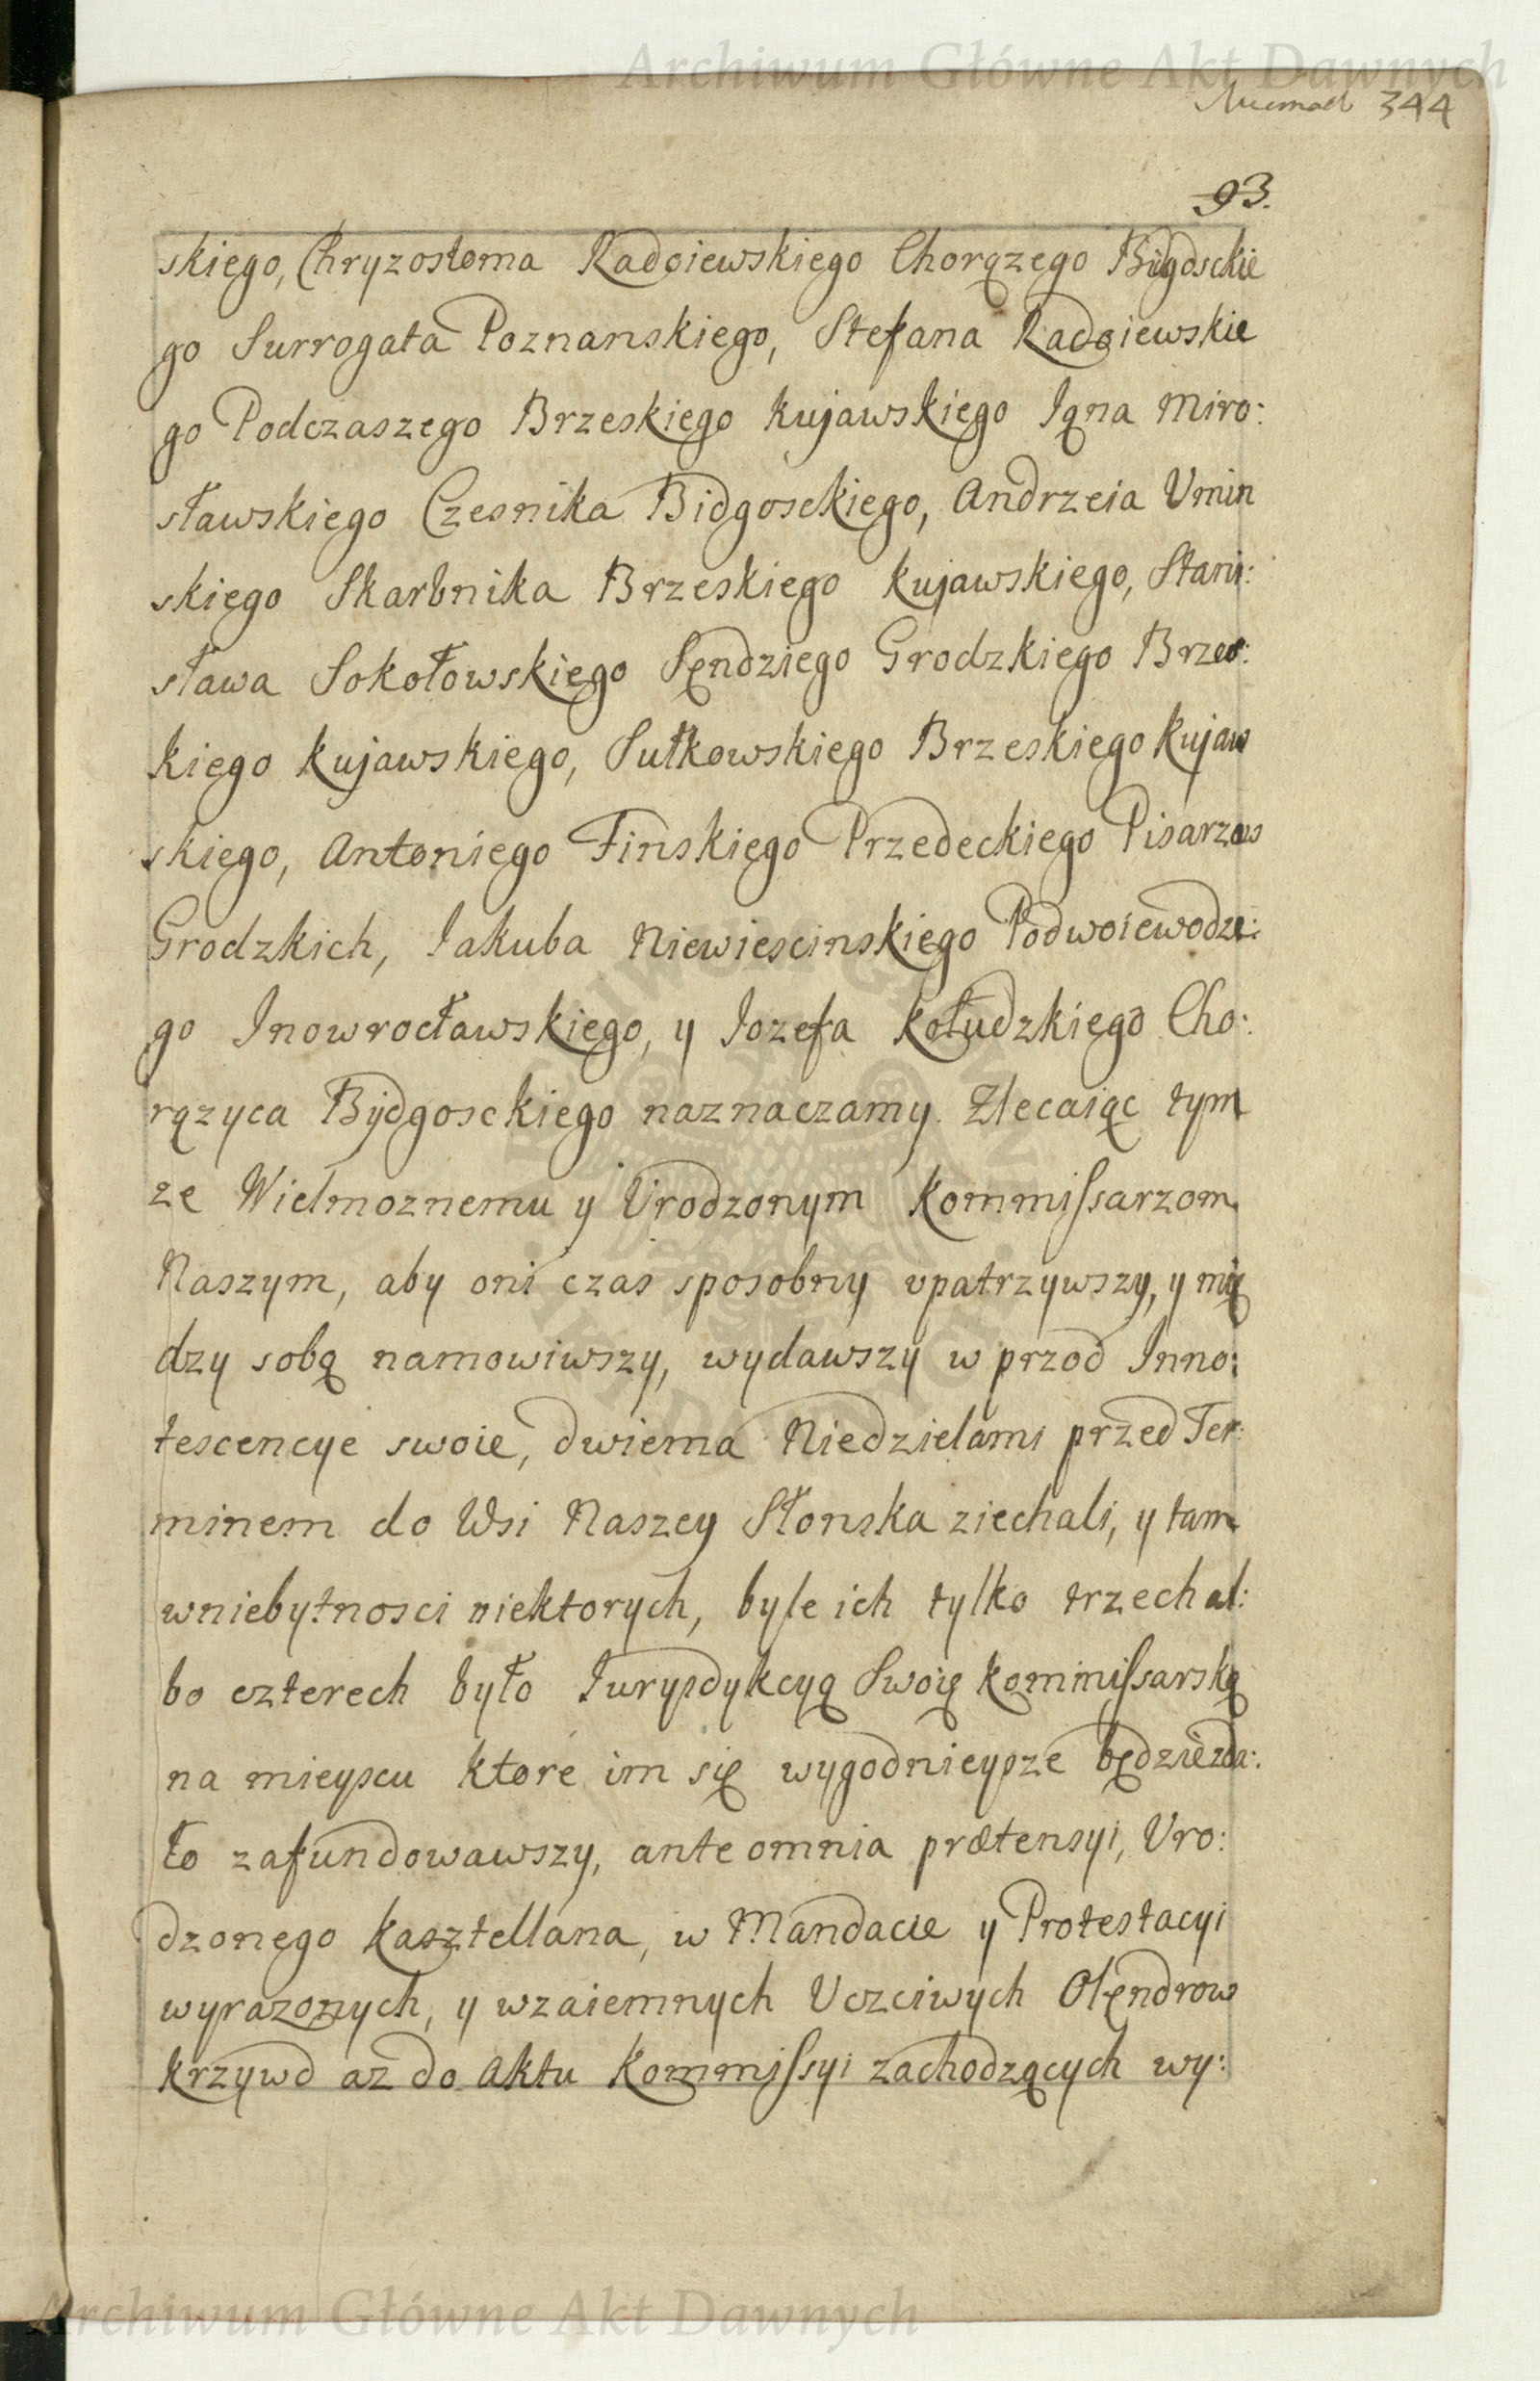 Archiwum Główne Akt Dawnych
344
93.
skiego, Chryzostoma Radoiewskiego Chorązego Bidgosckie
go Surrogata Poznanskiego, Stefana Radoiewskie
go Podczaszego Brzeskiego Kujawskiego Iąna Miro:
sławskiego Czesnika Bidgosckiego, Andrzeia Umin
skiego Skarbnika Brzeskiego Kujawskiego, Stani:
sława Sokołowskiego Sęndziego Grodzkiego Brzes:
kiego Kujawskiego, Sułkowskiego Brzeskiego Kujaw
skiego, Antoniego Finskiego Przedeckiego Pisarzow
Grodzkich, Iakuba Niewiescinskiego Podwoiewodze:
go Inowrocławskiego, y Iozefa Kołudzkiego Cho:
rązyca Bydgosckiego naznaczamy. Zlecaiąc tym
ze Wielmoznemu y Urodzonym Kommissarzom
Naszym, aby oni czas sposobny upatrzywszy, y mię
dzy sobą namowiwszy, wydawszy w przod Inno:
tescencye swoie, dwiema Niedzielami przed Ter:
minem do Wsi Naszey Słonska ziechali, y tam
wniebytnosci niektorych, byle ich tylko trzech al:
bo czterech było Iurysdykcyą Swoię Kommissarską
na mieyscu ktore im się wygodnieysze będzie zda:
ło zafundowawszy, ante omnia prætensyi, Uro:
dzonego Kasztellana, w Mandacie y Protestacyi
wyrazonych, y wzaiemnych Uczciwych Olęndrow
krzywd az do Aktu Kommissyi zachodzących wy:
Archiwum Główne Akt Dawnych